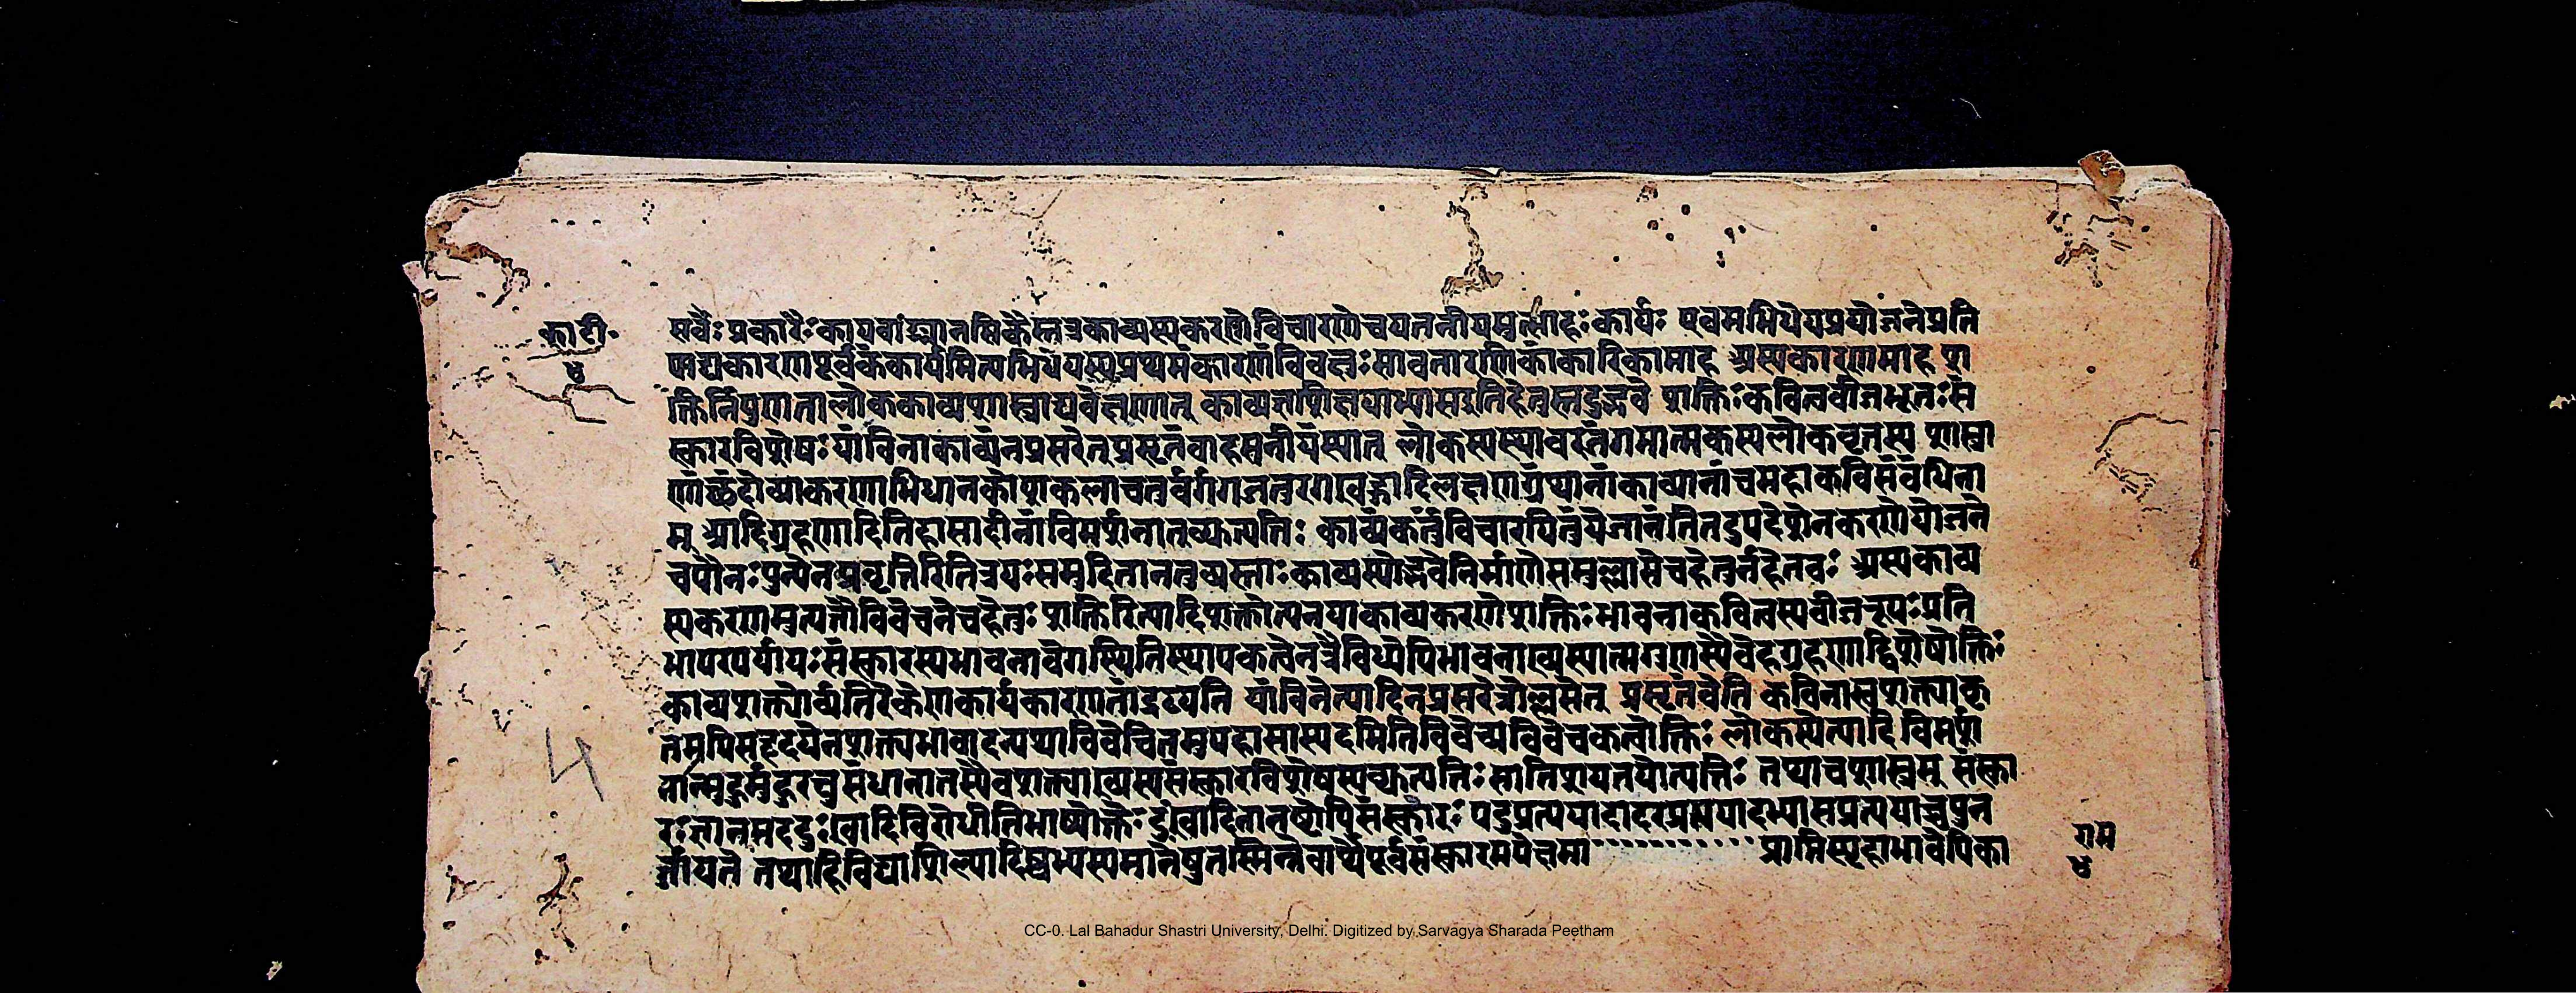 का टी॰
४
सर्वैः प्रकारैः कायवाङ्मानसिकैस्तत्र काव्यस्य करणे विचारणे च यतनीयमुत्साहः कार्यः एवमभिधेयप्रयोजने प्रति
पाद्य कारणपूर्वकं कार्यमित्यभिधेयस्य प्रथमं कारणं विवक्षुः मावतारणिकां कारिकामाह अस्य कारणमाह श
क्तिर्निपुणता लोककाव्यशास्त्राद्यवेक्षणात् काव्यज्ञशिक्षयाभ्यास इति हेतुस्तदुद्भवे शक्तिः कवित्वबीजभूतः सं
स्कारविशेषः यां विना काव्यं न प्रसरेत् प्रसृतं वा हसनीयं स्यात् लोकस्य स्थावरजंगमात्मकस्य लोकवृत्तस्य शास्त्रा
णां छंदोव्याकरणाभिधानकोशकलाचतुर्वर्गगजतुरगखड्गादिलक्षणग्रंथानां काव्यानां च महाकविसंबंधिना
म् आदिग्रहणादितिहासादीनां विमर्शनात् व्युत्पत्तिः काव्यं कर्तुं विचारयितुं ये जानंति तदुपदेशेन करणे योजने
च पौनःपुन्येन प्रवृत्तिरिति त्रयः समुदिता न तु व्यस्ताः काव्यस्योद्भवे निर्माणे समुल्लासे च हेतुर्न हेतवः अस्य काव्य
स्य करणमुत्पत्तौ विवेचने च हेतुः शक्तिरित्यादि शक्तोत्यनया काव्यकरणे शक्तिः भावना कवित्वस्य बीजरूपः प्रति
भापरपर्यायः संस्कारस्य भावनावेगस्थितिस्थापकत्वेन त्रैविध्येपि भावनाख्यस्यात्मगुणस्यैवेह ग्रहणाद्विशेषोक्तिः
काव्यशक्त्योर्व्यतिरेकेण कार्यकारणतां द्रढयति यां विनेत्यादि न प्रसरेन्नोल्लसेत् प्रसृतं वेति कविनास्वशक्त्या कृ
तमपि सहृदयेन शक्त्यभावादन्यथा विवेचितमुपहासास्पदमिति विवेच्यविवेचकत्वोक्तिः लोकस्येत्यादि विमर्श
नान्मुहुर्मुहुरनुसंधानात्तस्यैव शक्त्याख्यस्य संस्कारविशेषस्य व्युत्पत्तिः सातिशयतयोत्पत्तिः तथा च शास्त्रम् संस्का
रः ज्ञानमददुःखादिविरोधीति भाष्योक्तैः पटुप्रत्ययादादरप्रत्ययादभ्यासप्रत्ययाच्च पुन
र्जायते तथाहि विद्याशिल्पादिष्वभ्यस्यमानेषु तस्मिन्नेवार्थे पूर्वसंस्कारमपेक्षमा
राम
४
4
CC-0. Lal Bahadur Shastri University, Delhi. Digitized by Sarvagya Sharada Peetham